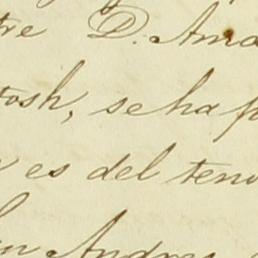 tre D. Ama
tosh, se ha p
es del teno
Andres